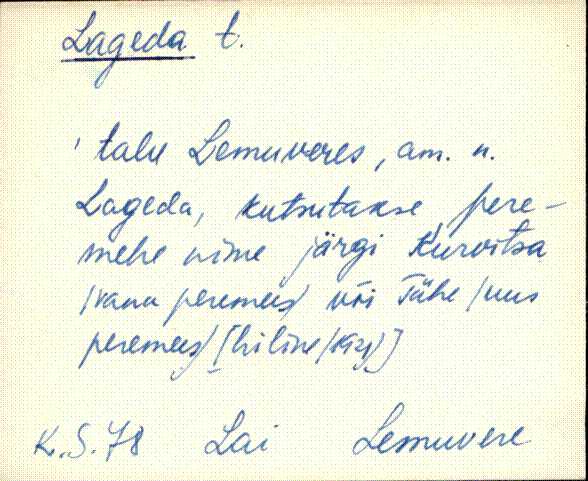 Lageda t.
' talu Lemuveres, am. n.
Lageda, kutsutakse pere-
mehe nime järgi Kurvitsa
/vana peremees/ või Tähe /uus
peremees/ [hiline
K.S. 78 Lai Lemuvere